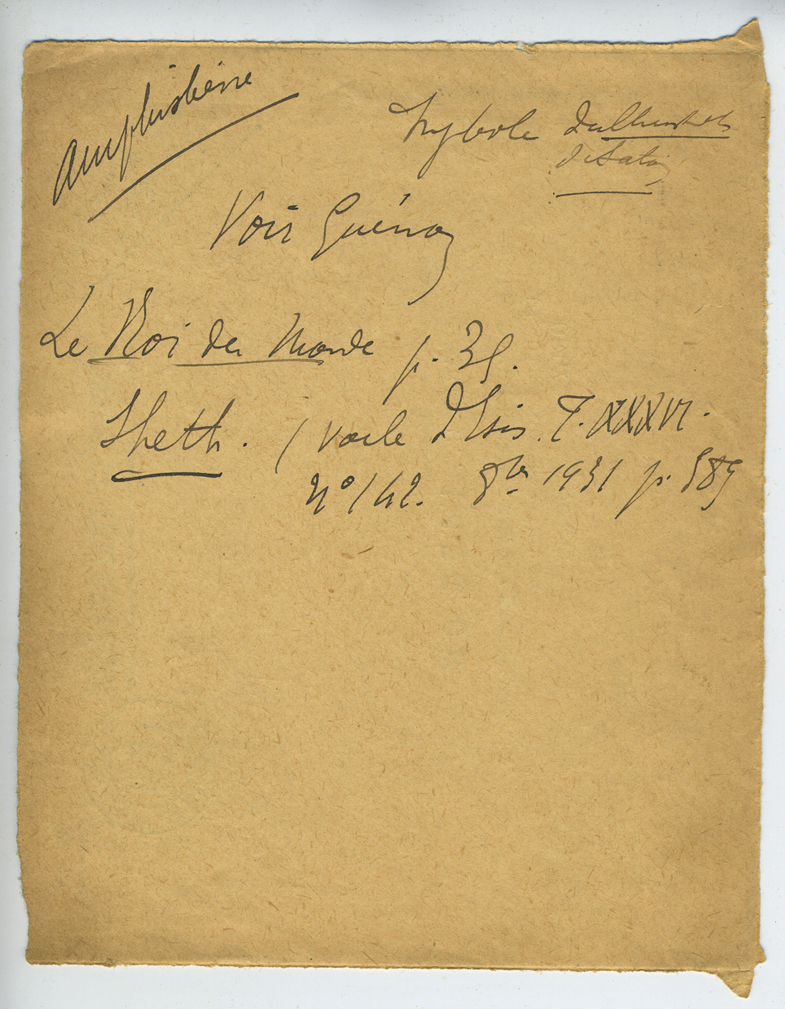 Amphisbène
Symbole du Christ et
de Satan
Voir Guénon
Le Roi du Monde p. 35.
Sheth. (voile d'Isis. T. XXXVI.
N° 142. 8bre 1931 p. 589